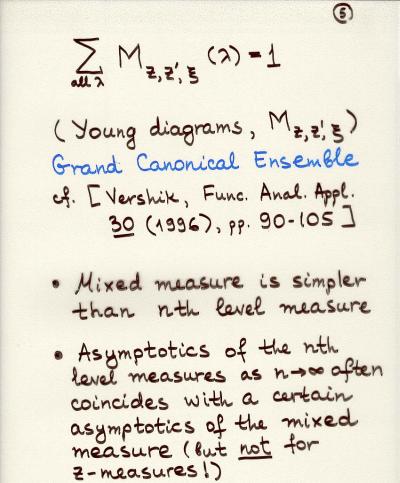 5
∑ M_{z,z',ξ} (λ) = 1
all λ
(Young diagrams, M_{z,z',ξ})
Grand Canonical Ensemble
cf. [Vershik, Func. Anal. Appl.
30 (1996), pp. 90-105]
• Mixed measure is simpler
than nth level measure
• Asymptotics of the nth
level measures as n→∞ often
coincides with a certain
asymptotics of the mixed
measure (but not for
z-measures!)